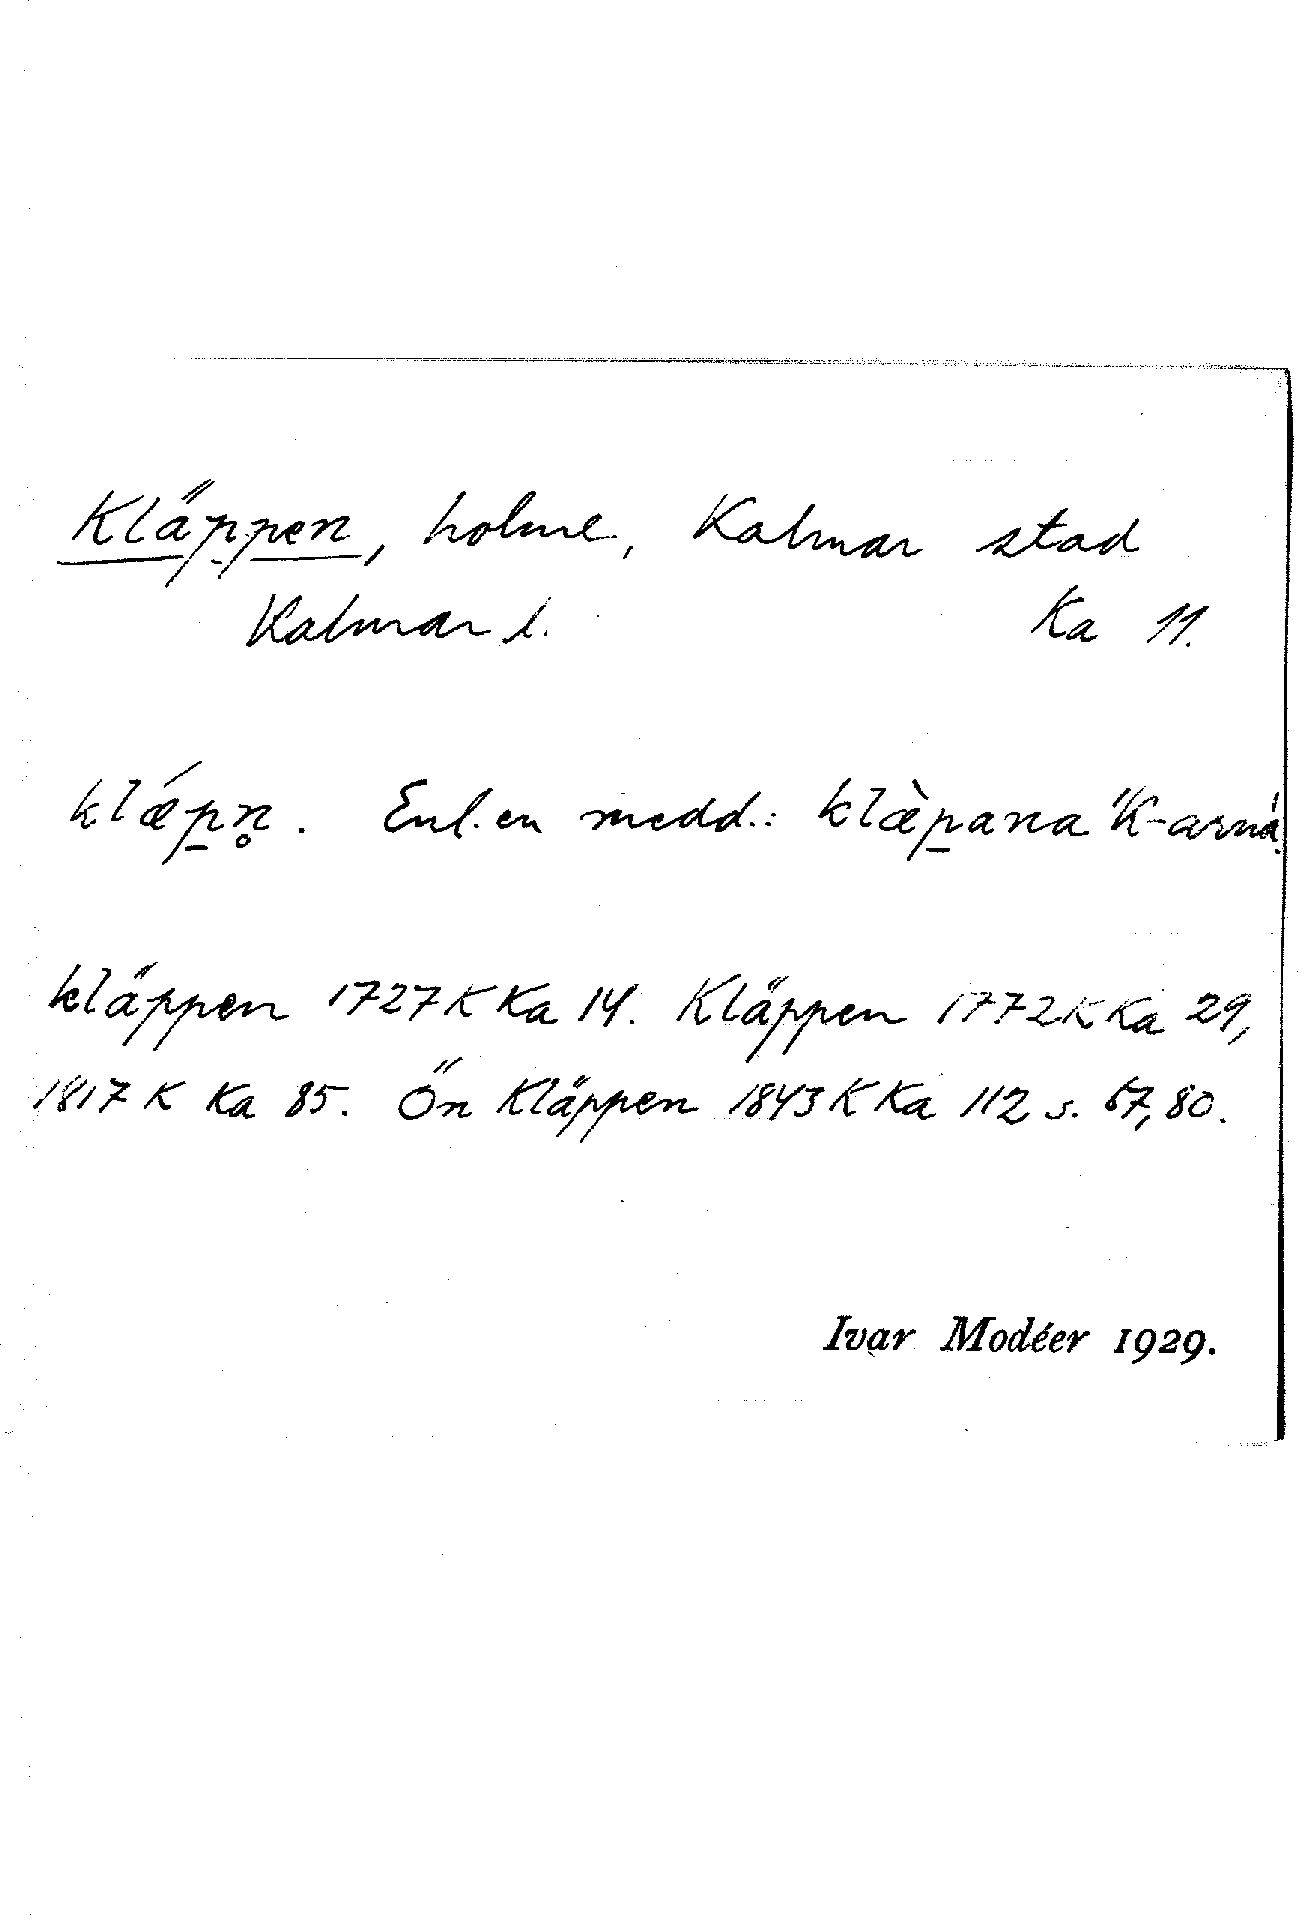 Kläppen, holme, Kalmar stad
Kalmar l. Ka 11.
klǽp̲n̥. Enl. en medd.: klæ̀p̲ana "K-arna".
kläppen 1727 K Ka 14. Kläppen 1772 K Ka 29,
1817 K Ka 85. Ön Kläppen 1843 K Ka 112 s. 67, 80.
Ivar Modéer 1929.